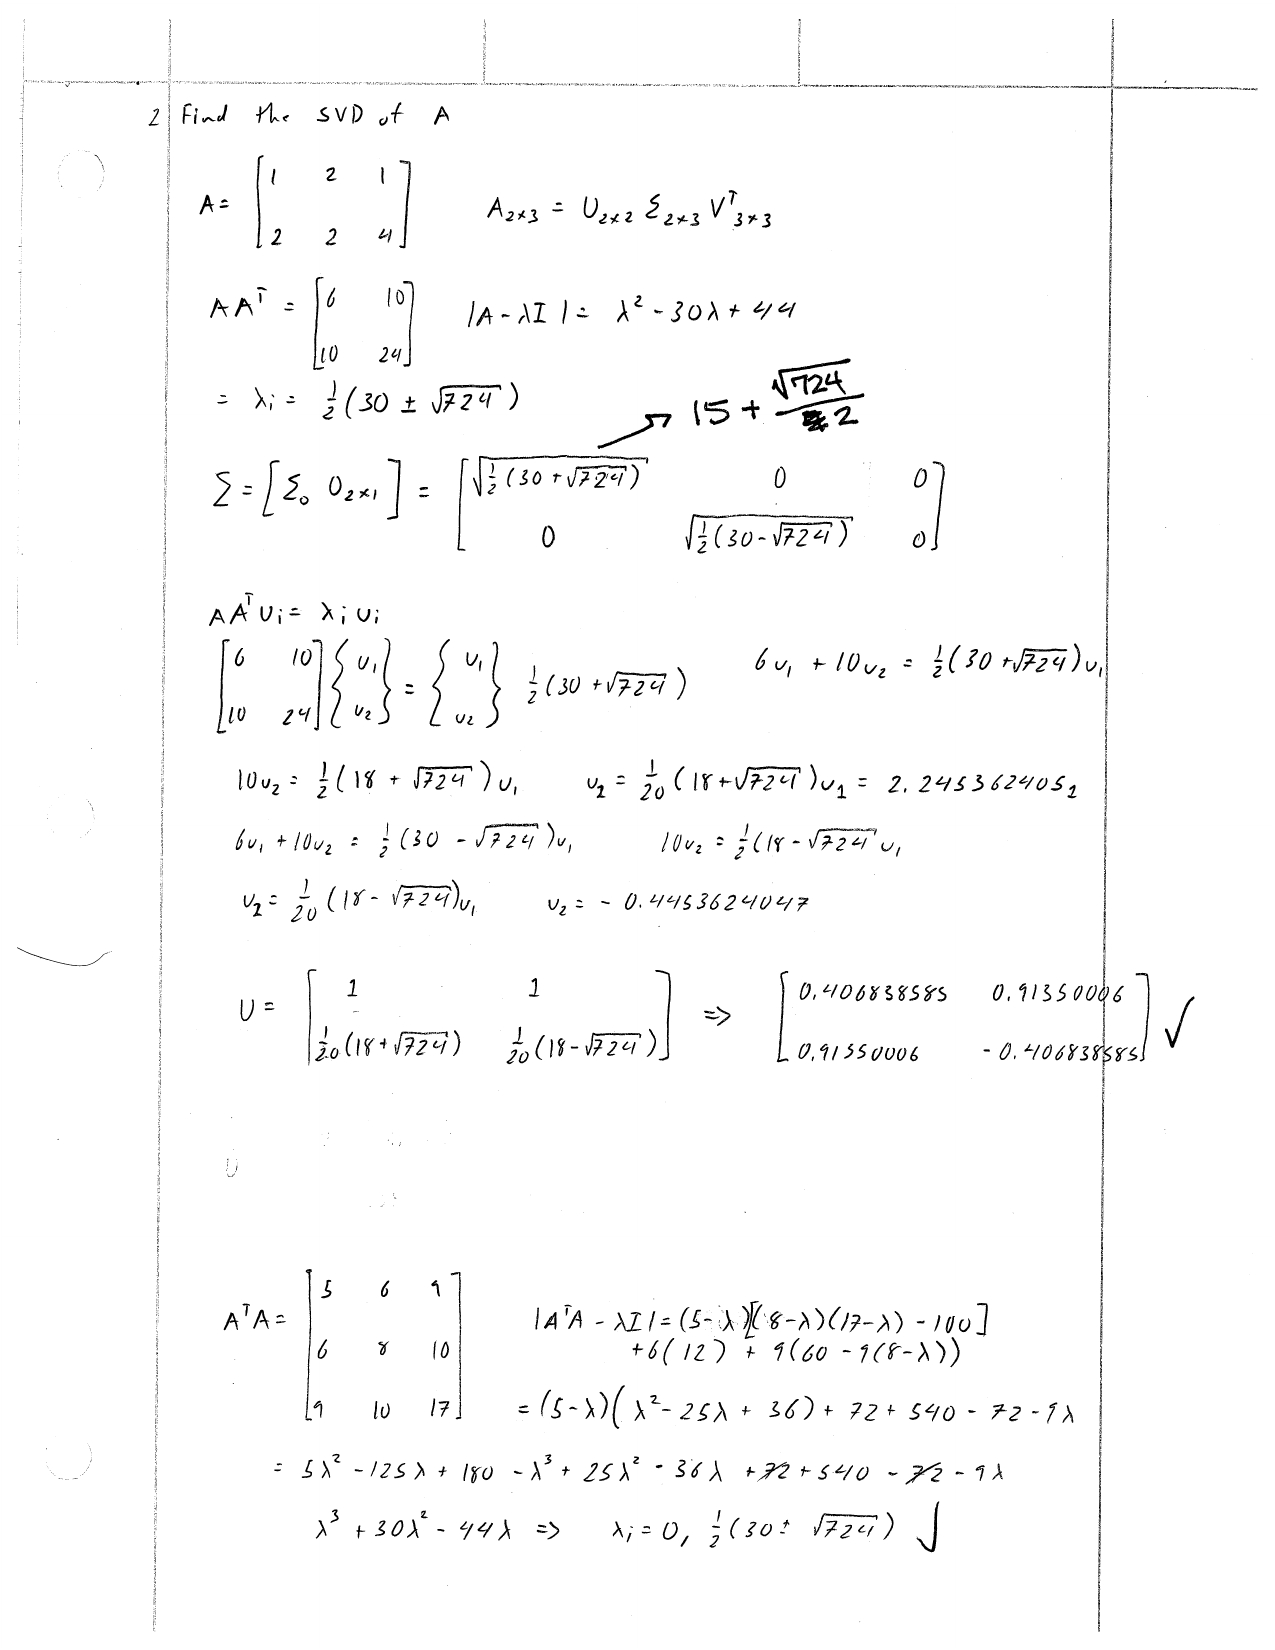 2 Find the SVD of A
A = [1 2 1; 2 2 4]   A₂ₓ₃ = U₂ₓ₂ Σ₂ₓ₃ Vᵀ₃ₓ₃
AAᵀ = [6 10; 10 24]   |A - λI| = λ² - 30λ + 44
= λᵢ = ½(30 ± √724)   → 15 + √724/2
Σ = [Σ₀ 0₂ₓ₁] = [√(½(30+√724)) 0 0; 0 √(½(30-√724)) 0]
AAᵀUᵢ = λᵢUᵢ
[6 10; 10 24]{u₁; u₂} = {u₁; u₂} ½(30+√724)   6u₁ + 10u₂ = ½(30+√724)u₁
10u₂ = ½(18 + √724)u₁   u₂ = 1/20(18+√724)u₁ = 2.2453624052
6u₁ + 10u₂ = ½(30 - √724)u₁   10u₂ = ½(18 - √724 u₁
u₂ = 1/20(18 - √724)u₁   u₂ = - 0.4453624047
U = [1 1; 1/20(18+√724) 1/20(18-√724)] => [0.406838585 0.91350006; 0.91350006 -0.406838585] ✓
AᵀA = [5 6 9; 6 8 10; 9 10 17]   |AᵀA - λI| = (5-λ)[(8-λ)(17-λ) - 100]
+6(12) + 9(60 - 9(8-λ))
= (5-λ)(λ² - 25λ + 36) + 72 + 540 - 72 - 9λ
= 5λ² - 125λ + 180 - λ³ + 25λ² - 36λ + 72 + 540 - 72 - 9λ
λ³ + 30λ² - 44λ => λᵢ = 0, ½(30 ± √724) ✓